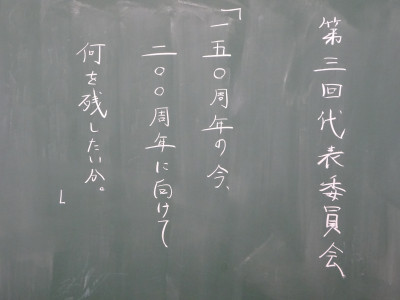 第三回代表委員会
「一五〇周年の今、
二〇〇周年に向けて
何を残したいか。」